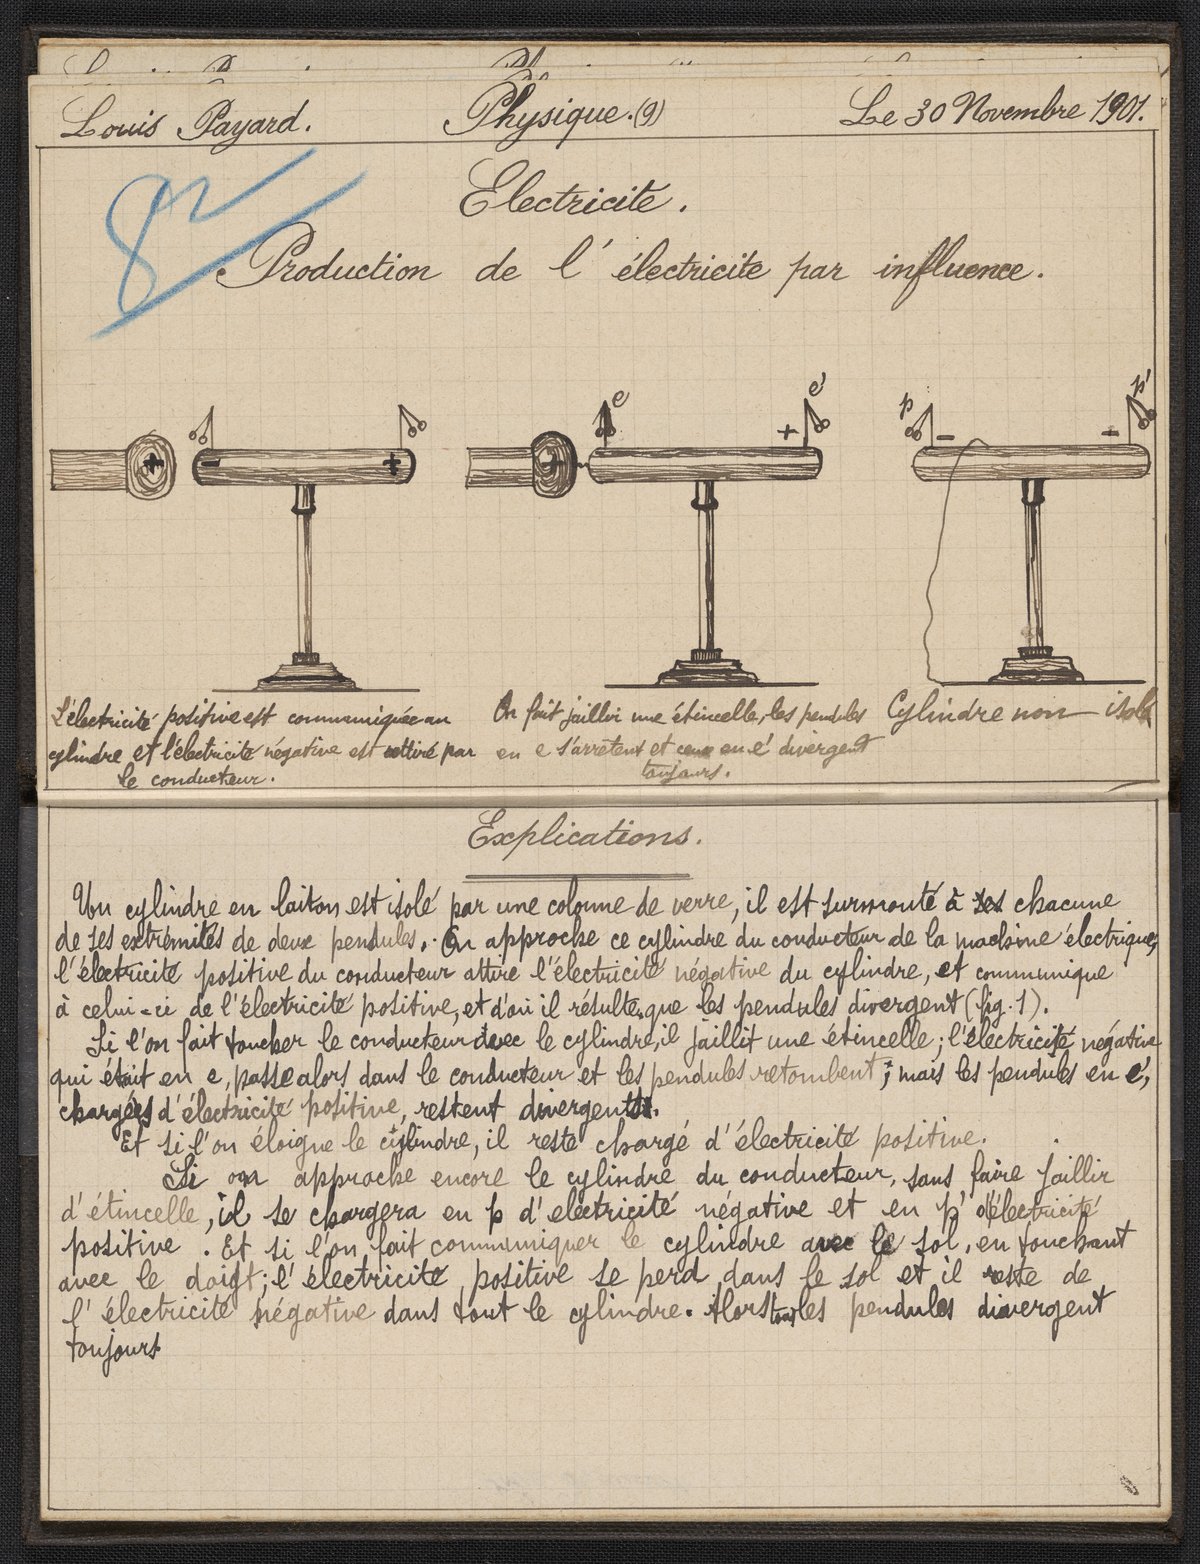 Louis Payard. Physique.(9) Le 30 Novembre 1901.
8
Electricite.
Production de l'électricite par influence.
e e' p p'
+ - -
+ - + +
L'électricité positive est communiquée au
cylindre et l'électricité négative est attiré par
le conducteur.
On fait jaillir une étincelle, les pendules
en e s'arretent et ceux en e' divergent
toujours.
Cylindre non isolé
Explications.
Un cylindre en laiton est isolé par une colonne de verre, il est surmonté à ses chacune
de ses extrémités de deux pendules. On approche ce cylindre du conducteur de la machine électrique,
l'électricité positive du conducteur attire l'électricité négative du cylindre, et communique
à celui-ci de l'électricité positive, et d'où il résulte, que les pendules divergent (fig. 1).
Si l'on fait toucher le conducteur avec le cylindre, il jaillit une étincelle; l'électricité négative
qui était en e, passe alors dans le conducteur et les pendules retombent; mais les pendules en e',
chargées d'électricité positive, restent divergents.
Et si l'on éloigne le cylindre, il reste chargé d'électricité positive.
Si on approche encore le cylindre du conducteur, sans faire jaillir
d'étincelle, il se chargera en p d'electricité négative et en p' d'électricité
positive. Et si l'on fait communiquer le cylindre avec le sol, en touchant
avec le doigt; l'électricité positive se perd dans le sol et il reste de
l'électricité négative dans tout le cylindre. Alors tous les pendules divergent
toujours